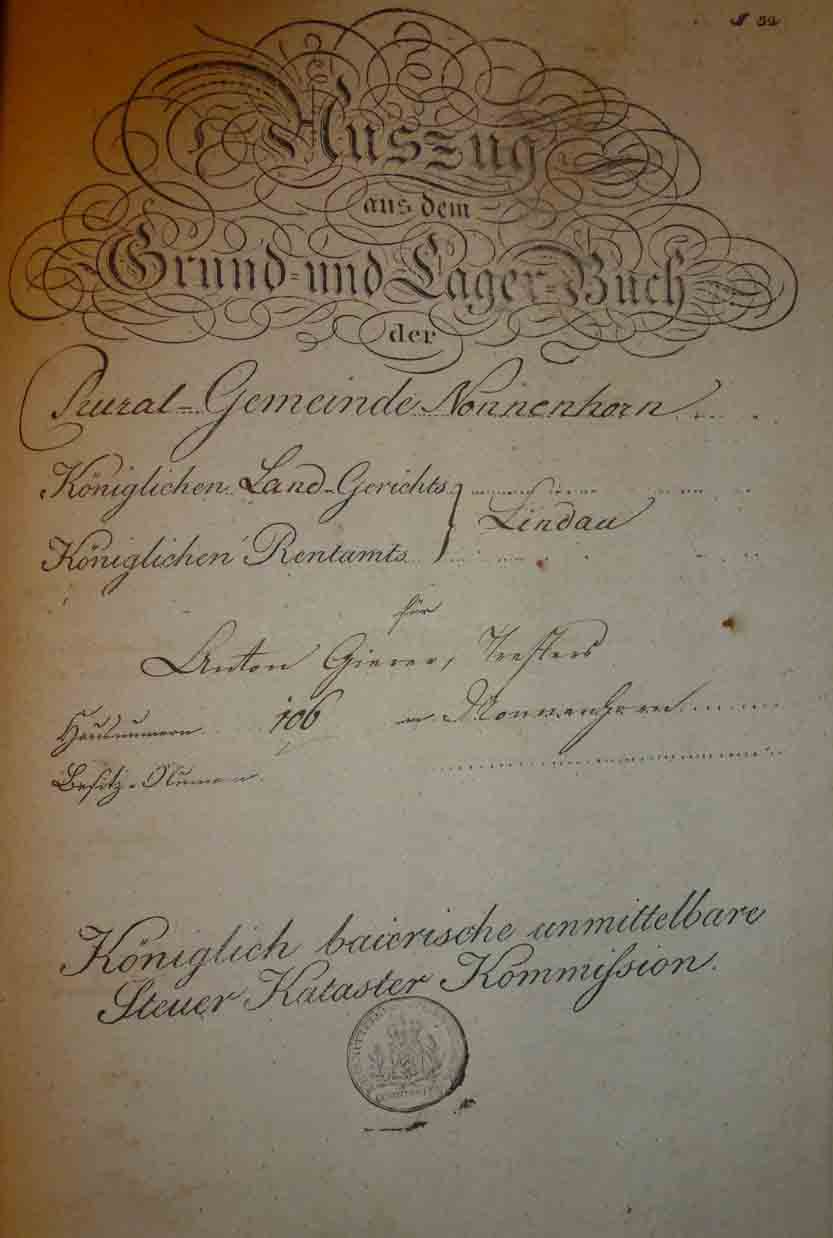 № 32
Auszug
aus dem
Grund- und Lager-Buch
der
Rural-Gemeinde Nonnenhorn
Königlichen Land-Gerichts
Lindau
Königlichen Rentamts
für
Anton Gierer, Tresters
Hausnummern 106 in Nonnenhorn
Besitz-Numern
Königlich baierische unmittelbare
Steuer Kataster Kommission.